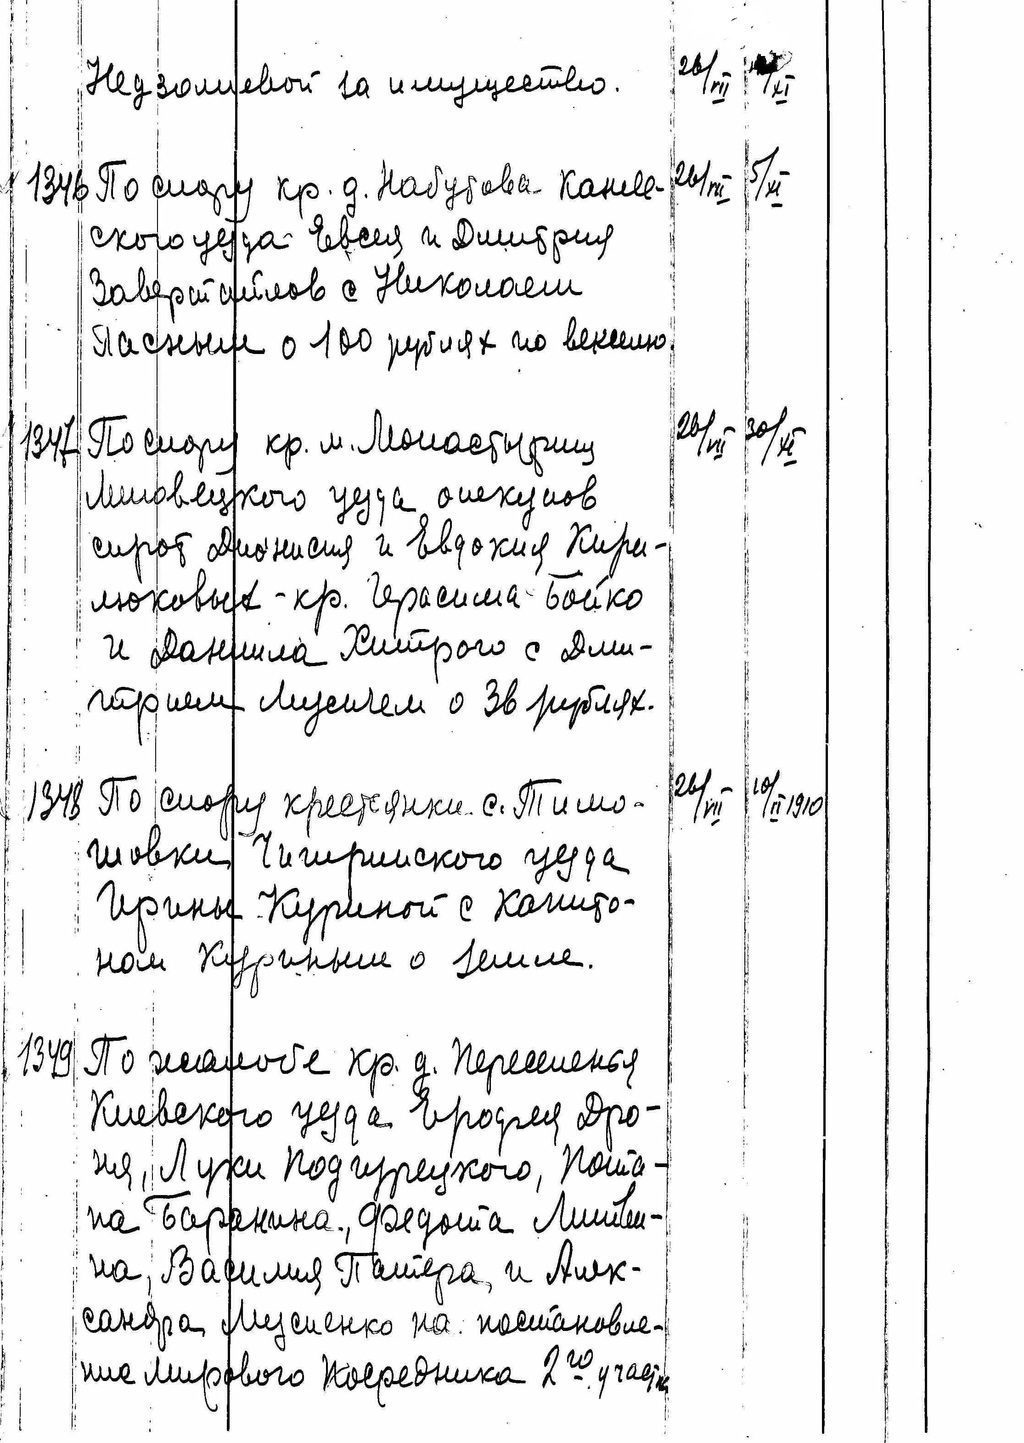 Недзолиевой за имущество. 26/VII /XI
1346 По спору кр. д. Набутова Канев- 26/VII 5/XI
ского уезда Евсея и Дмитрия
Завертайлов с Николаем
Пасным о 100 рублях по векселю.
1347 По спору кр. м. Монастырищ 26/VII 30/XI
Липовецкого уезда опекунов
сирот Дионисия и Евдокия Кири-
люковых - кр. Герасима Бойко
и Даниила Хитрого с Дми-
трием Мусичем о 36 рублях.
1348 По спору крестьянки с. Тимо- 26/VII 10/II 1910
шовки Чигиринского уезда
Ирины Куриной с Капито-
ном Куриным о земле.
1349 По жалобе кр. д. Пересеченья
Киевского уезда Ерофея Дро-
ня, Луки Подгурецкого, Пота-
па Баранина, Федота Литви-
на, Василия Пантера, и Алек-
сандра Мусиенко на постановле-
ние Мирового Посредника 2го участка